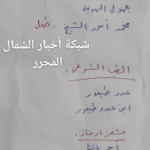 مجهول الهوية
محمد أحمد الشيخ . حزل
شبكة أخبار الشمال
المحرر
الطب الشرعي:
عبدو طيفور
ابن عبدو طيفور
مشفى أرمناز: